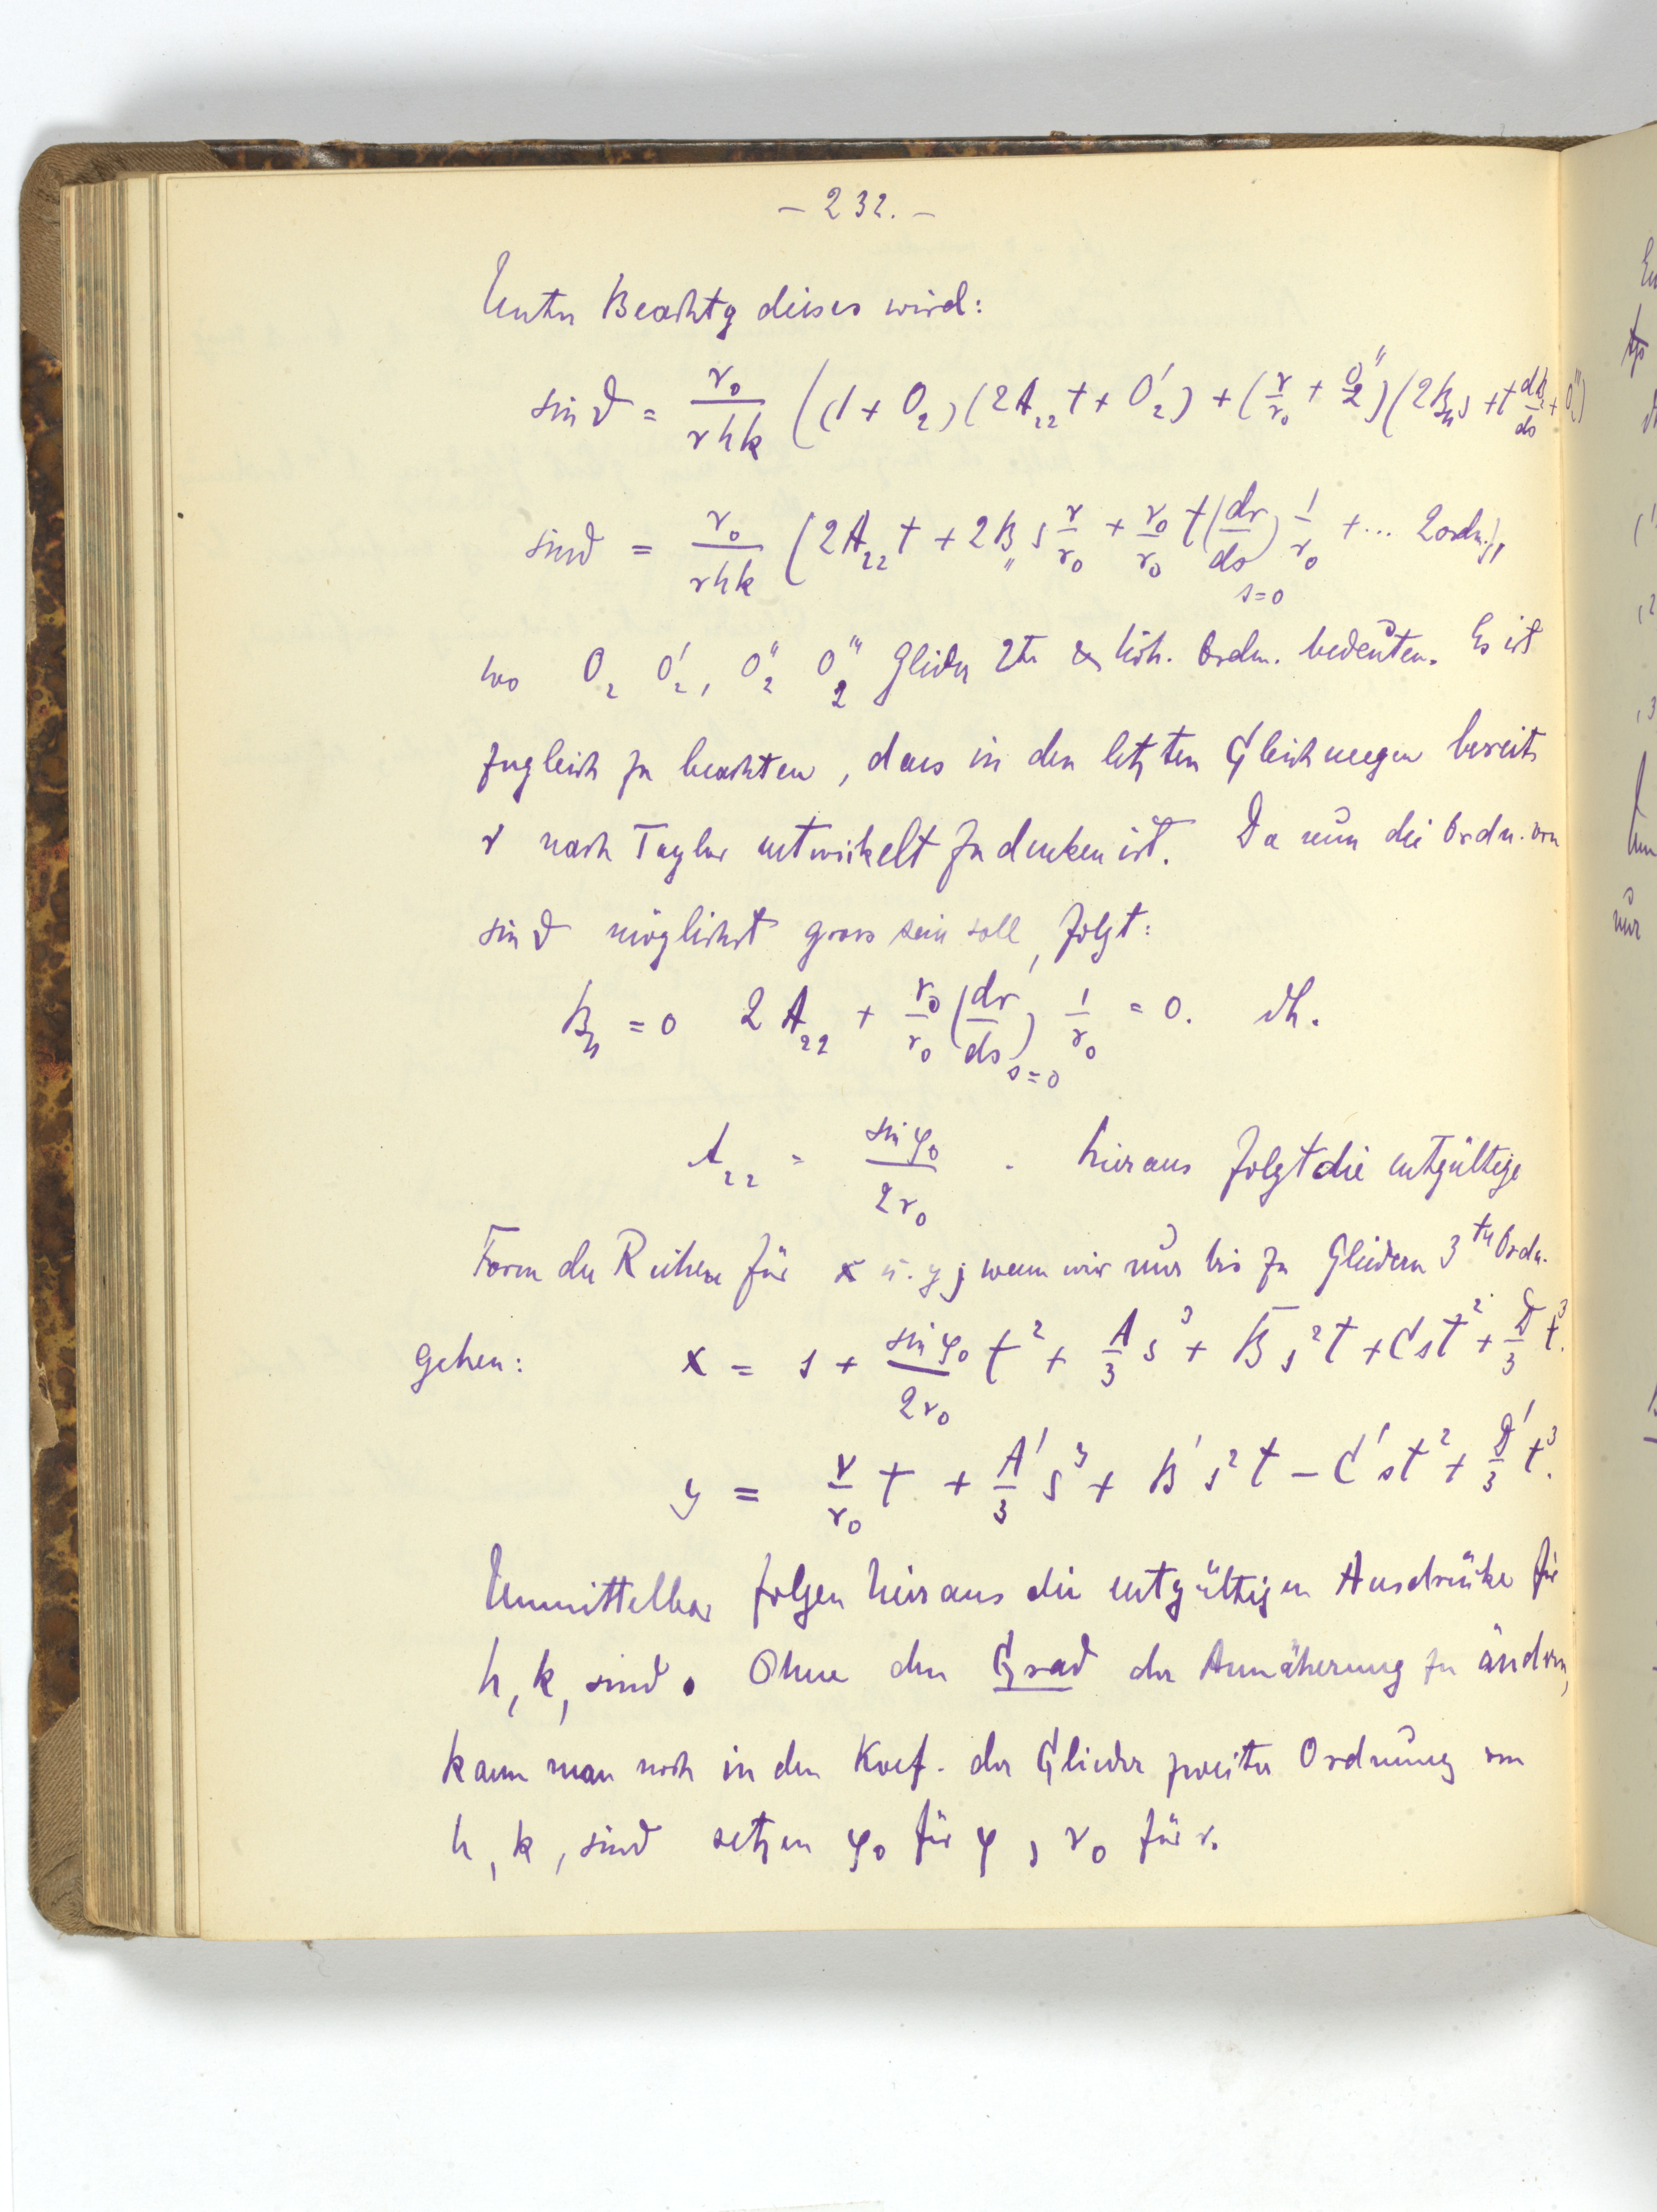 – 232. –
Unter Beachtg dieses wird:
sin ϑ = r₀/(rhk) ((1 + O₂)(2A₂₂t + O₂') + (r/r₀ + O₂'')(2B₁₁s + t dB₂/ds + O₂''')
sinϑ = r₀/(rhk) (2A₂₂t + 2B₁₁s r/r₀ + r₀/r₀ t(dr/ds)ₛ₌₀ 1/r₀ + ... 2ordn.),
wo O₂ O₂', O₂'' O₂''' Glieder 2ter & höh. Ordn. bedeuten. Es ist
zugleich zu beachten, dass in den letzten Gleichungen bereits
r nach Taylor entwickelt zu denken ist. Da nun die Ordn. von
sin ϑ möglichst gross sein soll, folgt:
B₁₁ = 0 2A₂₂ + r₀/r₀ (dr/ds)ₛ₌₀ 1/r₀ = 0. dh.
A₂₂ = sin φ₀/2r₀ . hieraus folgt die entgültige
Form der Reihen für x u. y; wenn wir nur bis zu Gliedern 3ter Ordn.
gehen: x = s + sin φ₀/2r₀ t² + A/3 s³ + B s²t + C st² + D/3 t³.
y = r/r₀ t + A'/3 s³ + B's²t – C'st² + D'/3 t³.
Unmittelbar folgen hieraus die entgültigen Ausdrücke für
h, k, sinϑ. Ohne den Grad der Annäherung zu ändern,
kann man noch in den Koef. der Glieder zweiter Ordnung von
h, k, sinϑ setzen φ₀ für φ, r₀ für r.